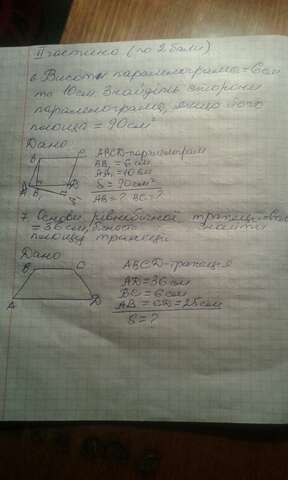 II частина (по 2 бали)
6 Висоти паралелограма = 6 см
та 10 см Знайдіть сторони
паралелограма, якщо його
площа = 90 см²
Дано
B C
A B₁ D
ABCD - паралелограм
BB₁ = 6 см
= 10 см
S = 90 см²
AB = ? BC = ?
7 Основи рівнобічної трапеції
= 36 см,
площу трапеції
Дано
B C
A D
ABCD - трапеція
AD = 36 см
BC = 6 см
AB = CD = 25 см
S = ?